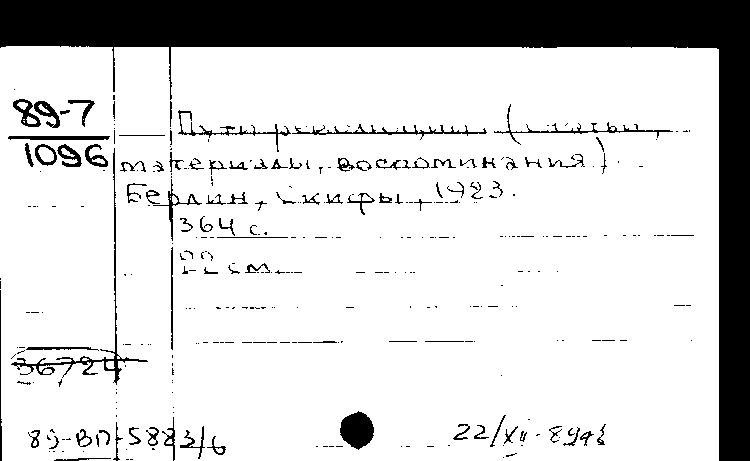 89-7
1096
Пути революции. (статьи,
материалы, воспоминания)
Берлин, Скифы, 1923.
364 с.
22 см.
36724
89-ВП-5883/6
22/XII-89